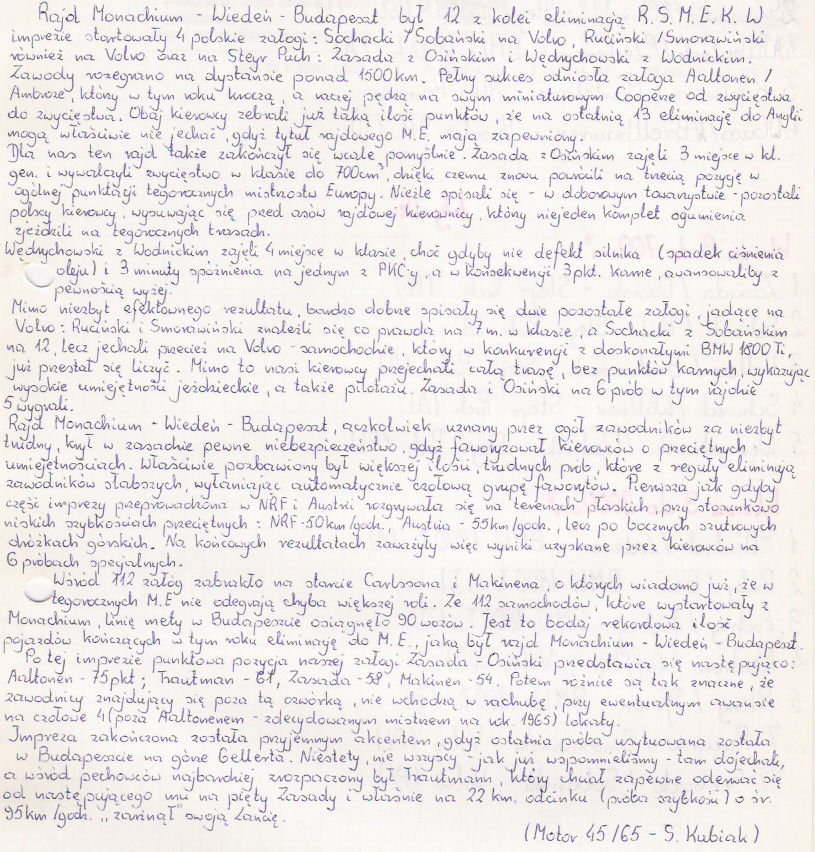 Rajd Monachium - Wiedeń - Budapeszt był 12 z kolei eliminacją R.S.M.E.K. W
imprezie startowały 4 polskie załogi: Sochacki / Sobański na Volvo, Ruciński / Smorawiński
również na Volvo oraz na Steyr Puch: Zasada z Osińskim i Wędrychowski z Wodnickim.
Zawody rozegrano na dystansie ponad 1500km. Pełny sukces odniosła załoga Aaltonen /
Ambroze, który w tym roku kroczą, a raczej pędzą na swym miniaturowym Cooperze od zwycięstwa
do zwycięstwa. Obaj kierowcy zebrali już taką ilość punktów, że na ostatnią 13 eliminację do Anglii
mogą właściwie nie jechać, gdyż tytuł rajdowego M.E. mają zapewniony.
Dla nas ten rajd także zakończył się wcale pomyślnie. Zasada z Osińskim zajęli 3 miejsce w kl.
gen. i wywalczyli zwycięstwo w klasie do 700cm³, dzięki czemu znowu powrócili na trzecią pozycję w
ogólnej punktacji tegorocznych mistrzostw Europy. Nieźle spisali się - w doborowym towarzystwie - pozostali
polscy kierowcy, wysuwając się przed asów rajdowej kierownicy, który niejeden komplet ogumienia
zjeździli na tegorocznych trasach.
Wędrychowski z Wodnickim zajęli 4 miejsce w klasie, choć gdyby nie defekt silnika (spadek ciśnienia
oleju) i 3 minuty spóźnienia na jednym z PKC-y, a w konsekwencji 3pkt. karne, awansowaliby z
pewnością wyżej.
Mimo niezbyt efektownego rezultatu, bardzo dobrze spisały się dwie pozostałe załogi, jadące na
Volvo: Ruciński i Smorawiński znaleźli się co prawda na 7m. w klasie, a Sochacki z Sobańskim
na 12, lecz jechali przecież na Volvo - samochodzie, który w konkurencji z doskonałymi BMW 1800 Ti,
już przestał się liczyć. Mimo to nasi kierowcy przejechali całą trasę, bez punktów karnych, wykazując
wysokie umiejętności jeździeckie, a także pilotażu. Zasada i Osiński na 6 prób w tym rajdzie
5 wygrali.
Rajd Monachium - Wiedeń - Budapeszt, aczkolwiek uznany przez ogół zawodników za niezbyt
trudny, krył w zasadzie pewne niebezpieczeństwo, gdyż faworyzował kierowców o przeciętnych
umiejętnościach. Właściwie pozbawiony był większej ilości, trudnych prob, które z reguły eliminują
zawodników słabszych, wyłaniając automatycznie czołową grupę faworytów. Pierwsza jak gdyby
część imprezy przeprowadzona w NRF i Austrii rozgrywała się na terenach płaskich, przy stosunkowo
niskich szybkościach przeciętnych: NRF-50km/godz., Austria - 55km/godz., lecz po bocznych szutrowych
dróżkach górskich. Na końcowych rezultatach zaważyły więc wyniki uzyskane przez kierowców na
6 próbach specjalnych.
Wśród 112 załóg zabrakło na starcie Carlssona i Makinena, o których wiadomo już, że w
tegorocznych M.E nie odegrają chyba większej roli. Ze 112 samochodów, które wystartowały z
Monachium, linię mety w Budapeszcie osiągnęło 90 wozów. Jest to bodaj rekordowa ilość
pojazdów kończących w tym roku eliminację do M.E., jaką był rajd Monachium - Wiedeń - Budapeszt.
Po tej imprezie punktowa pozycja naszej załogi Zasada - Osiński przedstawia się następująco:
Aaltonen - 75pkt; Trautman - 61, Zasada - 58, Makinen - 54. Potem różnice są tak znaczne, że
zawodnicy znajdujący się poza tą czwórką, nie wchodzą w rachubę, przy ewentualnym awansie
na czołowe 4 (poza Aaltonenem - zdecydowanym mistrzem na rok 1965) lokaty.
Impreza zakończona została przyjemnym akcentem, gdyż ostatnia próba usytuowana została
w Budapeszcie na górze Gellerta. Niestety, nie wszyscy - jak już wspomnieliśmy - tam dojechali,
a wśród pechowców najbardziej zrozpaczony był Trautmann, który chciał zapewne oderwać się
od następującego mu na pięty Zasady i właśnie na 22 km. odcinku (próba szybkości) o śr.
95km/godz. „zarżnął" swoją Lancię.
(Motor 45/65 - S. Kubiak)